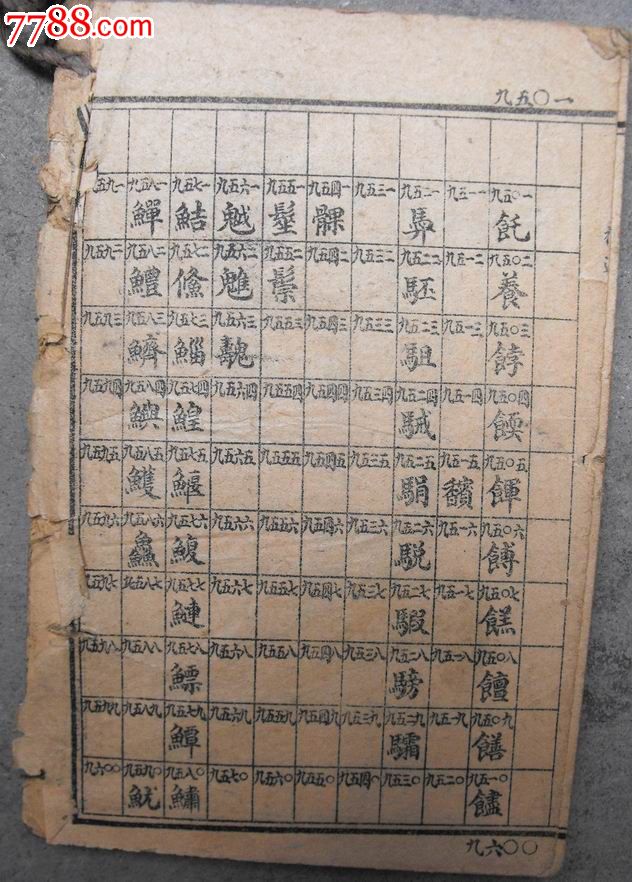 7788.com
中国收藏热线
九五〇一
九五〇一 飥 九五〇二 養 九五〇三 餑 九五〇四 餪 九五〇五 餫 九五〇六 餺 九五〇七 餻 九五〇八 饘 九五〇九 饍 九五一〇
九五一一 九五一二 九五一三 九五一四 九五一五 馪 九五一六 九五一七 九五一八 九五一九 九五二〇
九五二一 九五二二 駓 九五二三 駔 九五二四 駥 九五二五 駽 九五二六 駾 九五二七 騢 九五二八 騯 九五二九 九五三〇
九五三一 九五三二 九五三三 九五三四 九五三五 九五三六 九五三七 九五三八 九五三九 九五四〇
九五四一 髁 九五四二 九五四三 九五四四 九五四五 九五四六 九五四七 九五四八 九五四九 九五五〇
九五五一 髽 九五五二 鬃 九五五三 九五五四 九五五五 九五五六 九五五七 九五五八 九五五九 九五六〇
九五六一 魆 九五六二 魋 九五六三 魗 九五六四 九五六五 九五六六 九五六七 九五六八 九五六九 九五七〇
九五七一 鮚 九五七二 鯈 九五七三 鯔 九五七四 鰉 九五七五 鰋 九五七六 鰒 九五七七 鰱 九五七八 鰾 九五七九 鱏 九五八〇 鱐
九五八一 鱓 九五八二 鱧 九五八三 鱭 九五八四 鱮 九五八五 鱯 九五八六 鱻 九五八七 九五八八 九五八九 九五九〇 魷
九五九一 九五九二 九五九三 九五九四 九五九五 九五九六 九五九七 九五九八 九五九九 九六〇〇
九六〇〇